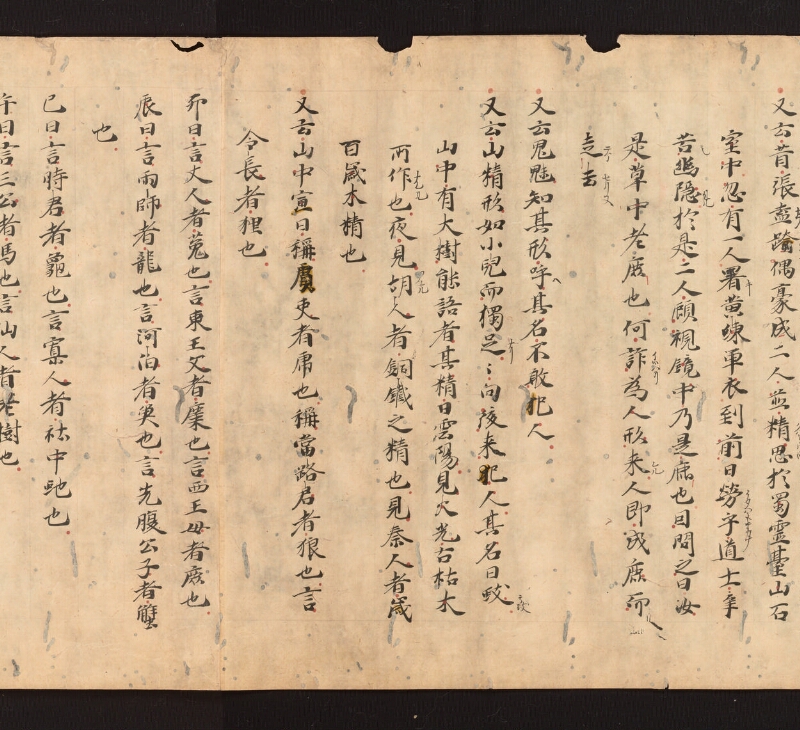 又云昔張蓋蹹偶豪成二人並精思於蜀雲臺山石
室中忽有一人著黄練單衣到前曰勞乎道士辛
苦幽隠於是二人顧視鏡中乃是鹿也因問之曰汝
是草中老鹿也何詐為人形来人即成鹿而
走去
又云鬼魅知其形呼其名不敢犯人
又云山精形如小兒而獨足〻向後来犯人其名曰蚑
山中有大樹能語者其精曰雲陽見火光古枯木
所作也夜見胡人者銅鐵之精也見秦人者歳
百歳木精也
又云山中寅日稱虞吏者虎也稱當路君者狼也言
令長者狸也
卯日言丈人者兎也言東王父者麋也言西王母者鹿也
辰日言雨師者龍也言河泊者魚也言无膓公子者蟹
也
巳日言時君者龜也言寡人者社中虵也
午日言三公者馬也言仙人者老樹也